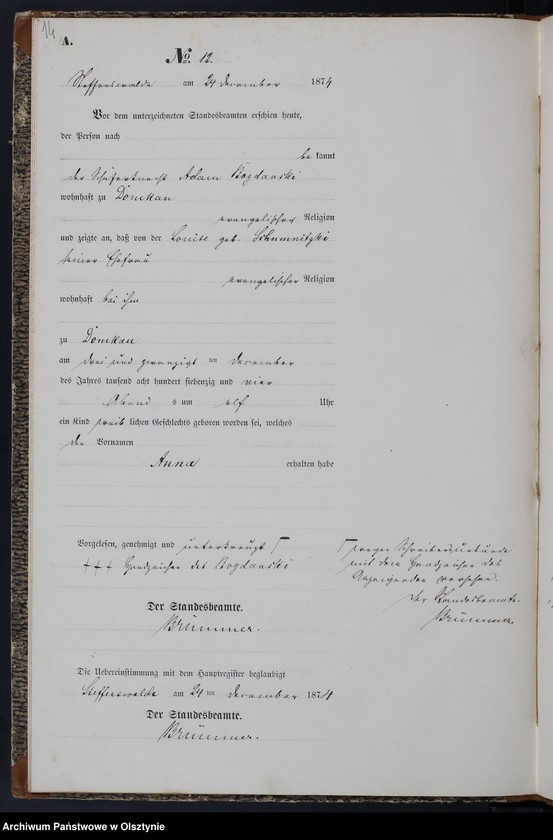 14
A.
No. 12.
Steffenswalde am 24 December 1874
Vor dem unterzeichneten Standesbeamten erschien heute,
der Person nach
be kannt
der Schäferknecht Adam Bogdanski
wohnhaft zu Domkau
evangelischer Religion
und zeigte an, daß von der Louise geb.
seiner Ehefrau
evangelischer Religion
wohnhaft bei ihm
zu Domkau
am drei und zwanzigsten December
des Jahres tausend acht hundert siebenzig und vier
Abend s um elf Uhr
ein Kind weib lichen Geschlechts geboren worden sei, welches
den Vornamen
Anna erhalten habe
Vorgelesen, genehmigt und unterkreuzt
wegen Schreibensunkunde
+++ Handzeichen des Bogdanski
mit dem Handzeichen des
Anzeigenden versehen.
Der Standesbeamte.
Brümmer.
Der Standesbeamte.
Brümmer.
Die Uebereinstimmung mit dem Hauptregister beglaubigt
Steffenswalde am 24 ten December 1874
Der Standesbeamte.
Brümmer.
Archiwum Państwowe w Olsztynie